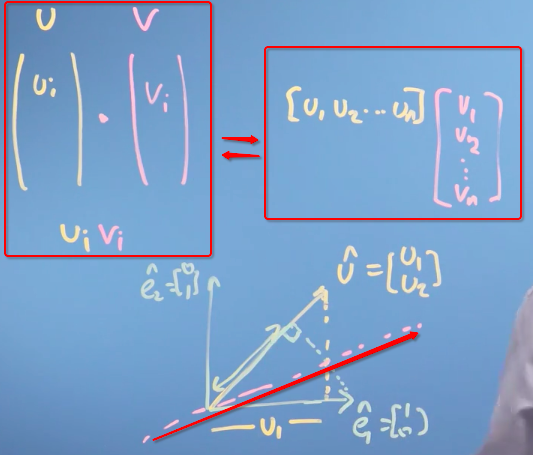 U V
[Ui] · [Vi]
Ui Vi
[U1 U2 ... Un] [V1 V2 ⋮ Vn]
ê2 = [0 1]
Û = [U1 U2]
U1
ê1 = [1 0]